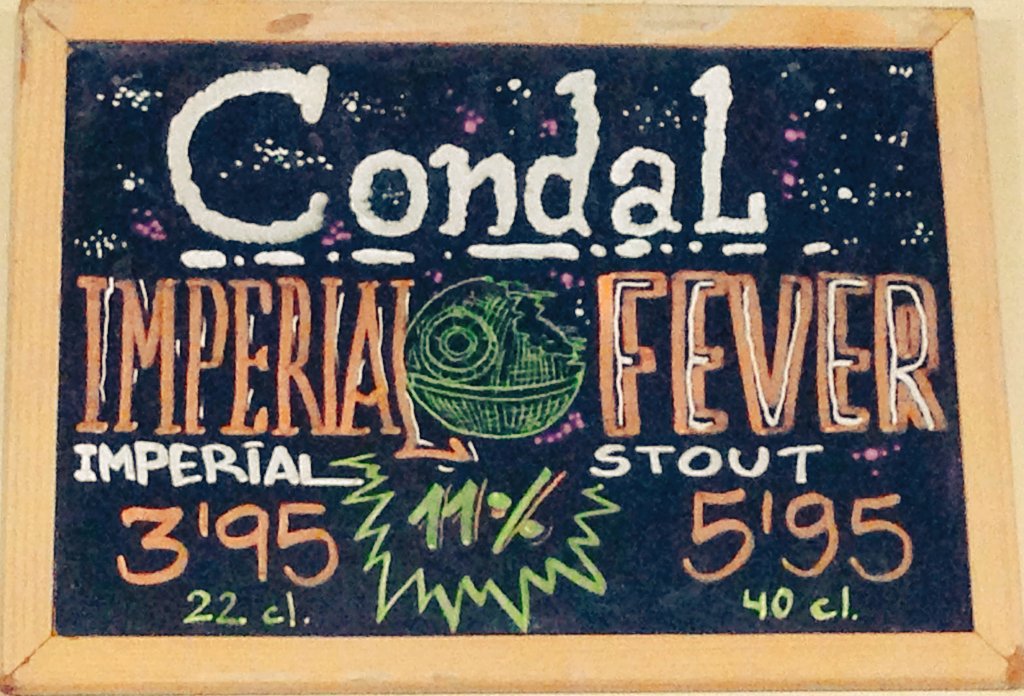 Condal
IMPERIAL FEVER
IMPERIAL STOUT
11%
3'95 5'95
22 cl. 40 cl.